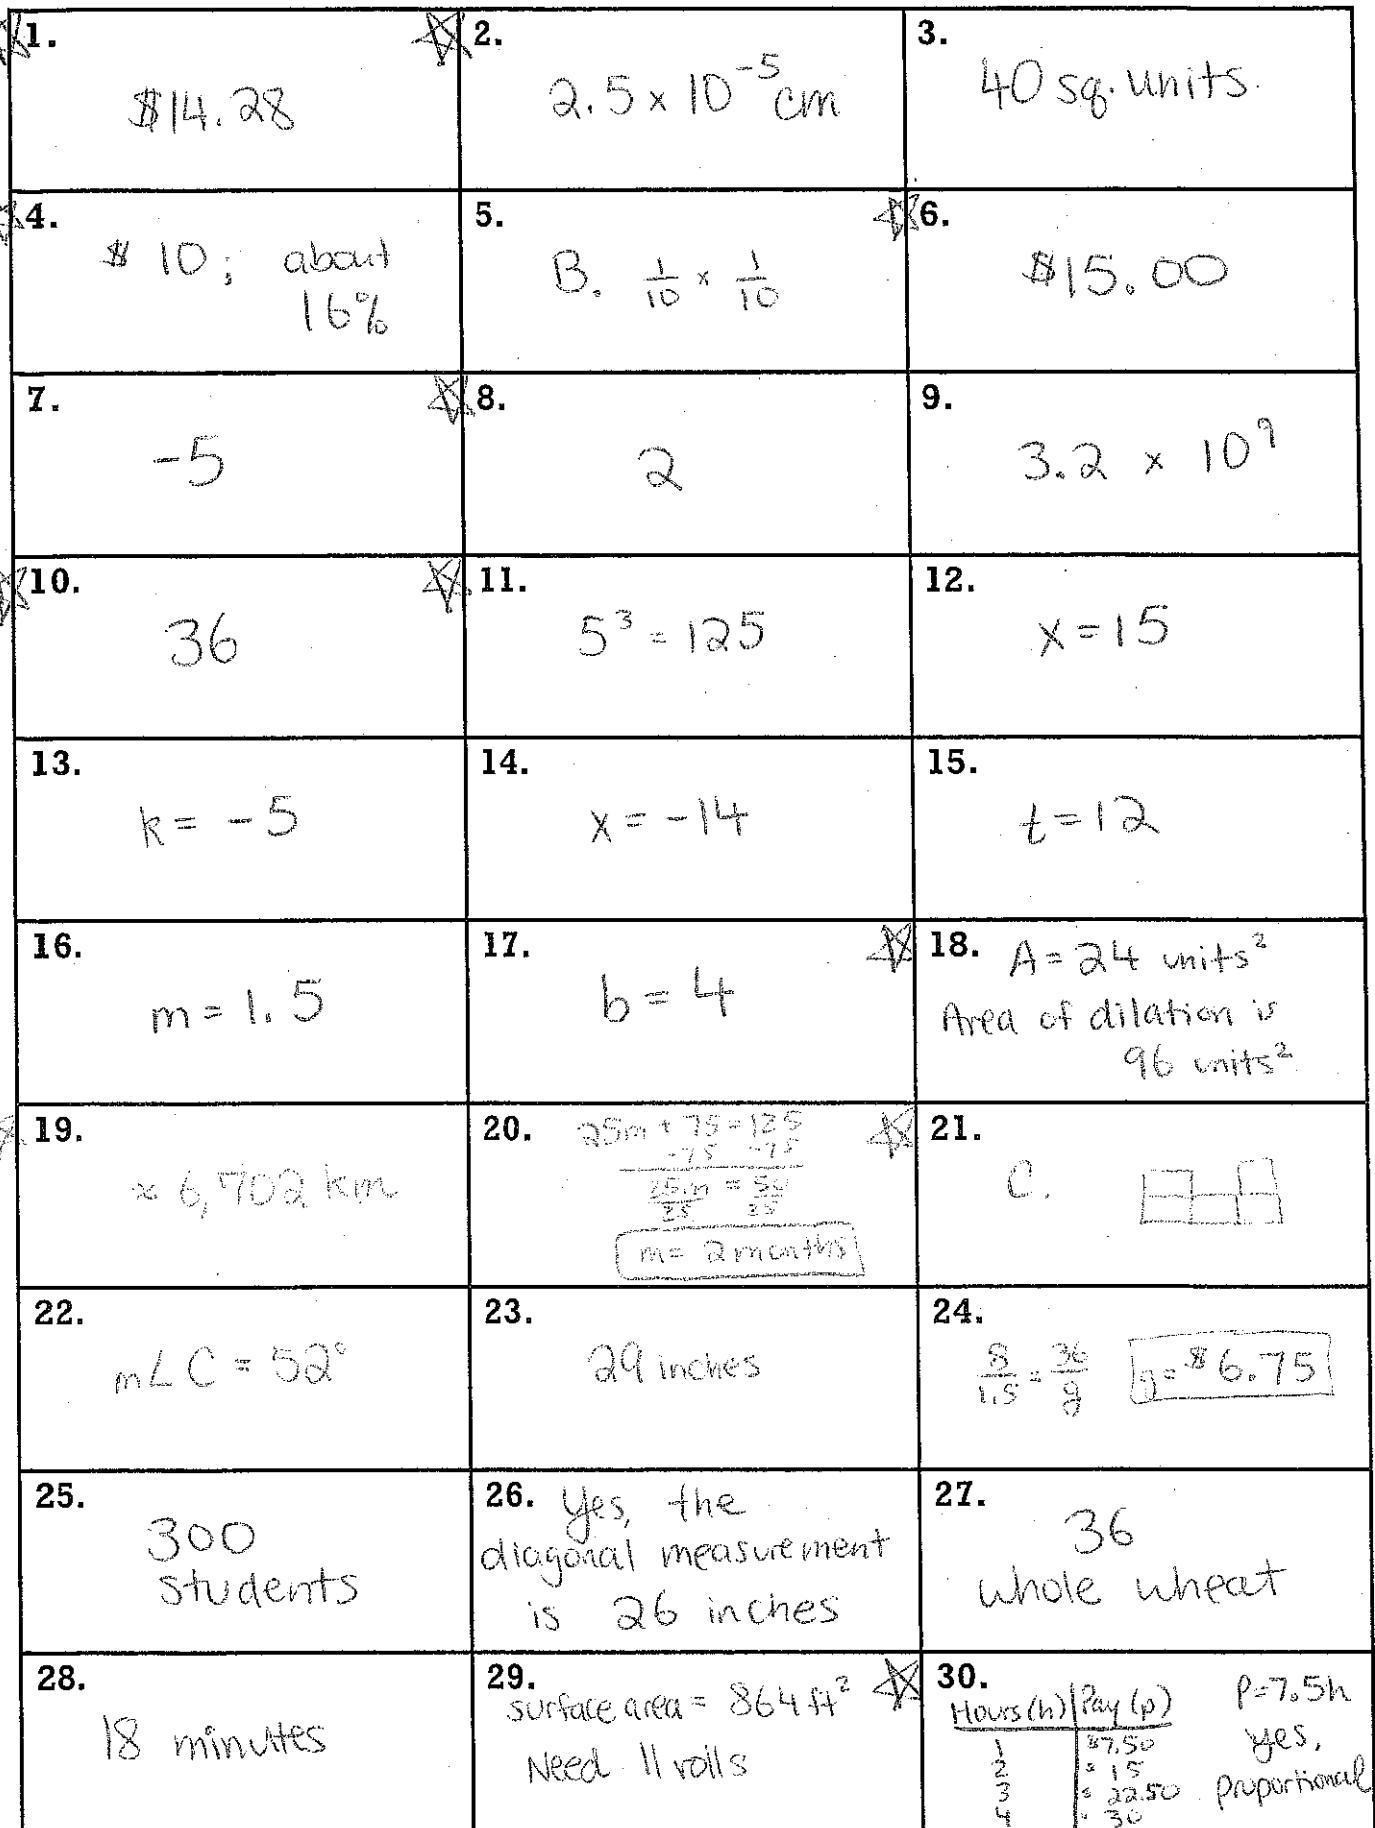 1.
$14.28
2.
2.5 x 10⁻⁵ cm
3.
40 sq. units.
4.
$ 10; about
16%
5.
B. 1/10 x 1/10
6.
$15.00
7.
-5
8.
2
9.
3.2 x 10⁹
10.
36
11.
5³ = 125
12.
x = 15
13.
k = -5
14.
x = -14
15.
t = 12
16.
m = 1.5
17.
b = 4
18. A = 24 units²
Area of dilation is
96 units²
19.
≈ 6,702 km
20. 25m + 75 = 125
-75 -75
25m/25 = 50/25
m = 2 months
21.
C.
22.
m∠C = 52°
23.
29 inches
24.
8/1.5 = 36/g g = $6.75
25.
300
students
26. Yes, the
diagonal measurement
is 26 inches
27.
36
whole wheat
28.
18 minutes
29.
surface area = 864 ft²
Need 11 rolls
30.
Hours (h) Pay (p) P=7.5h
1 $7.50 yes,
2 $ 15
3 $ 22.50 proportional
4 $ 30